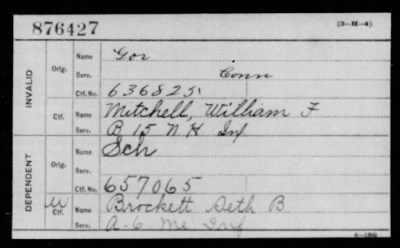 876427
(3-H-4)
INVALID
Orig.
Name Gov
Serv. Conn
Ctf. No. 636825
Ctf.
Name Mitchell, William F
Serv. B 15 N H Inf
DEPENDENT
Orig.
Name Sch
Serv.
Ctf. No. 657065
Ctf.
Name Brockett Seth B
Serv. A-6 Me Inf
6-1366